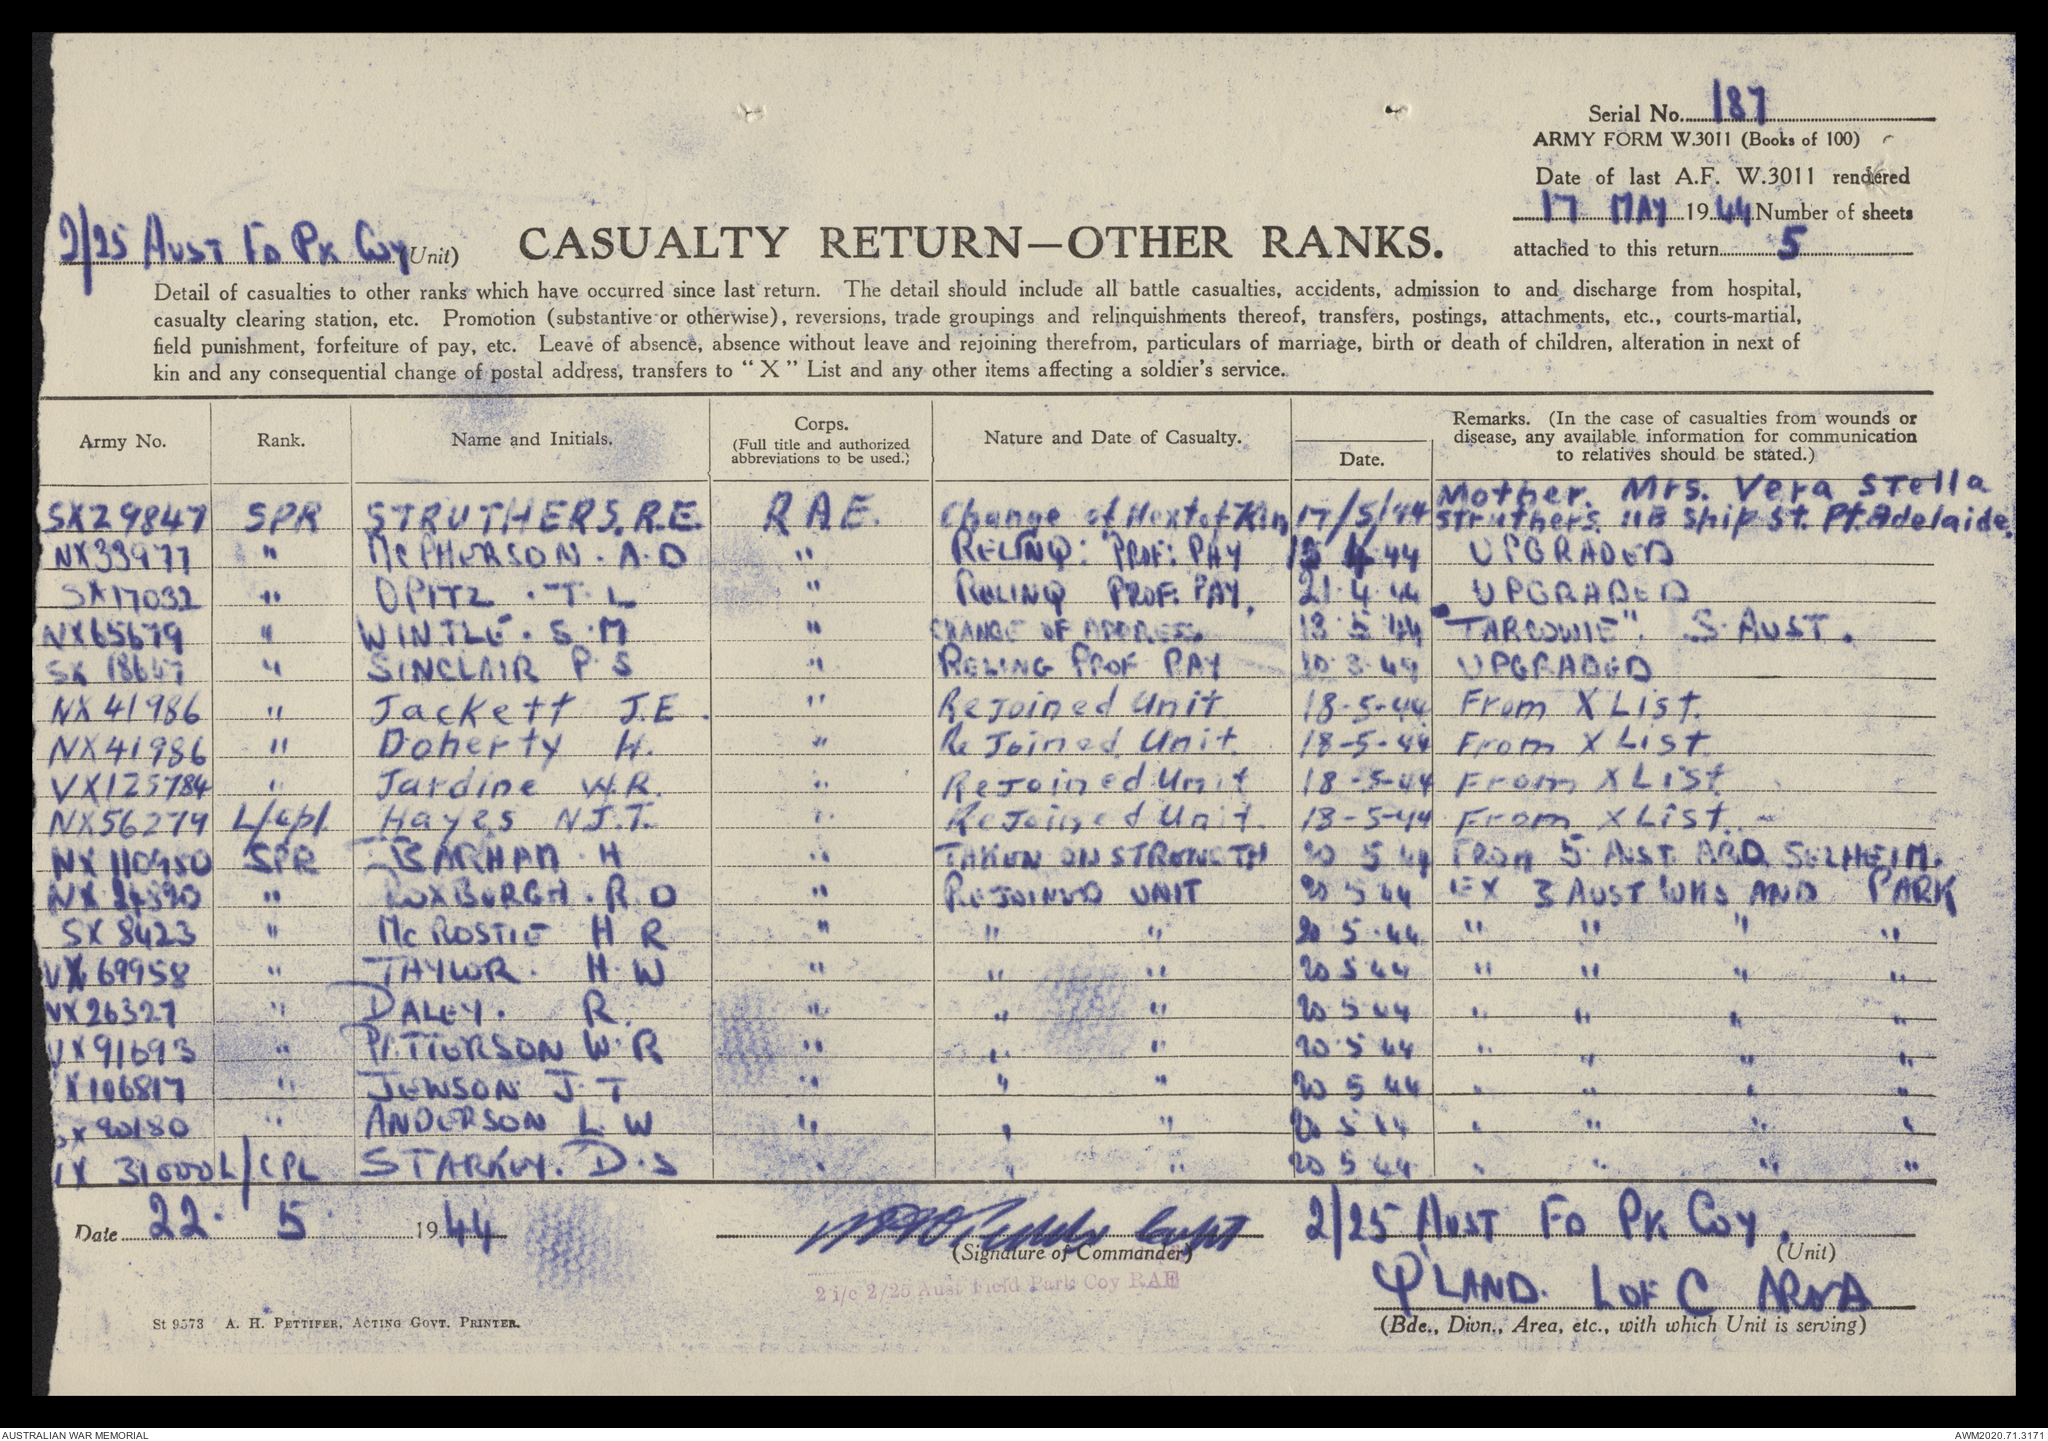 Serial No. 187
ARMY FORM W.3011 (Books of 100)
Date of last A.F. W.3011 rendered
17 MAY 1944 Number of sheets
attached to this return 5
2/25 AUST FD PK COY (Unit)
CASUALTY RETURN—OTHER RANKS.
Detail of casualties to other ranks which have occurred since last return. The detail should include all battle casualties, accidents, admission to and discharge from hospital,
casualty clearing station, etc. Promotion (substantive or otherwise), reversions, trade groupings and relinquishments thereof, transfers, postings, attachments, etc., courts-martial,
field punishment, forfeiture of pay, etc. Leave of absence, absence without leave and rejoining therefrom, particulars of marriage, birth or death of children, alteration in next of
kin and any consequential change of postal address, transfers to "X" List and any other items affecting a soldier's service.
Army No. Rank. Name and Initials. Corps. (Full title and authorized abbreviations to be used.) Nature and Date of Casualty. Date. Remarks. (In the case of casualties from wounds or disease, any available information for communication to relatives should be stated.)
SX29847 SPR STRUTHERS. R.E. R A E. Change of Next of Kin 17/5/44 Mother. Mrs. Vera Stella Struthers. 11B Ship St. Pt. Adelaide.
NX33977 " McPHERSON. A.D " RELINQ: PROF: PAY 4 44 UPGRADED
SX17032 " OPITZ. T. L " RELINQ PROF: PAY. 21.4.44 UPGRADED
NX65679 " WINTLE. S. M " CHANGE OF ADDRESS 18 5 44 "TARCOWIE". S. AUST.
SX " SINCLAIR P. S " RELINQ PROF PAY UPGRADED
NX41986 " Jackett J.E. " Rejoined Unit 18-5-44 From X List.
NX41986 " Doherty H. " Rejoined Unit 18-5-44 From X List
VX125784 " Jardine W.R. " Rejoined Unit 18-5-44 From X List
NX56279 L/Cpl. Hayes N.J.T. " Rejoined Unit. 18-5-44 From X List
NX110950 SPR BARHAM. H " TAKEN ON STRENGTH 20 5 44 FROM 5 AUST. ARD. SELHEIM.
NX " ROXBURGH. R.D " REJOINED UNIT 20 5 44 EX 3 AUST WKS AND PARK
SX 8423 " McROSTIE H R " " " 20 5.44 " " " "
VX 69958 " TAYLOR. H. W " " " 20 5 44 " " " "
VX26327 " DALEY. R. " " " 20.5.44 " " " "
VX91693 " PATTERSON W. R " " " 20.5 44 " " " "
X106817 " JEWSON J. T " " " 20 5 44 " " " "
X90180 " ANDERSON L. W " " " 20 5 44 " " " "
X 31000 L/CPL STARKEY. D.S " " " 20 5 44 " " " "
Date 22. 5. 1944
(Signature of Commander)
2 i/c 2/25 Aust Field Park Coy RAE
2/25 AUST FD PK COY. (Unit)
QLAND. L OF C AREA
(Bde., Divn., Area, etc., with which Unit is serving)
St 9573 A. H. PETTIFER, ACTING GOVT. PRINTER.
AUSTRALIAN WAR MEMORIAL
AWM2020.71.3171